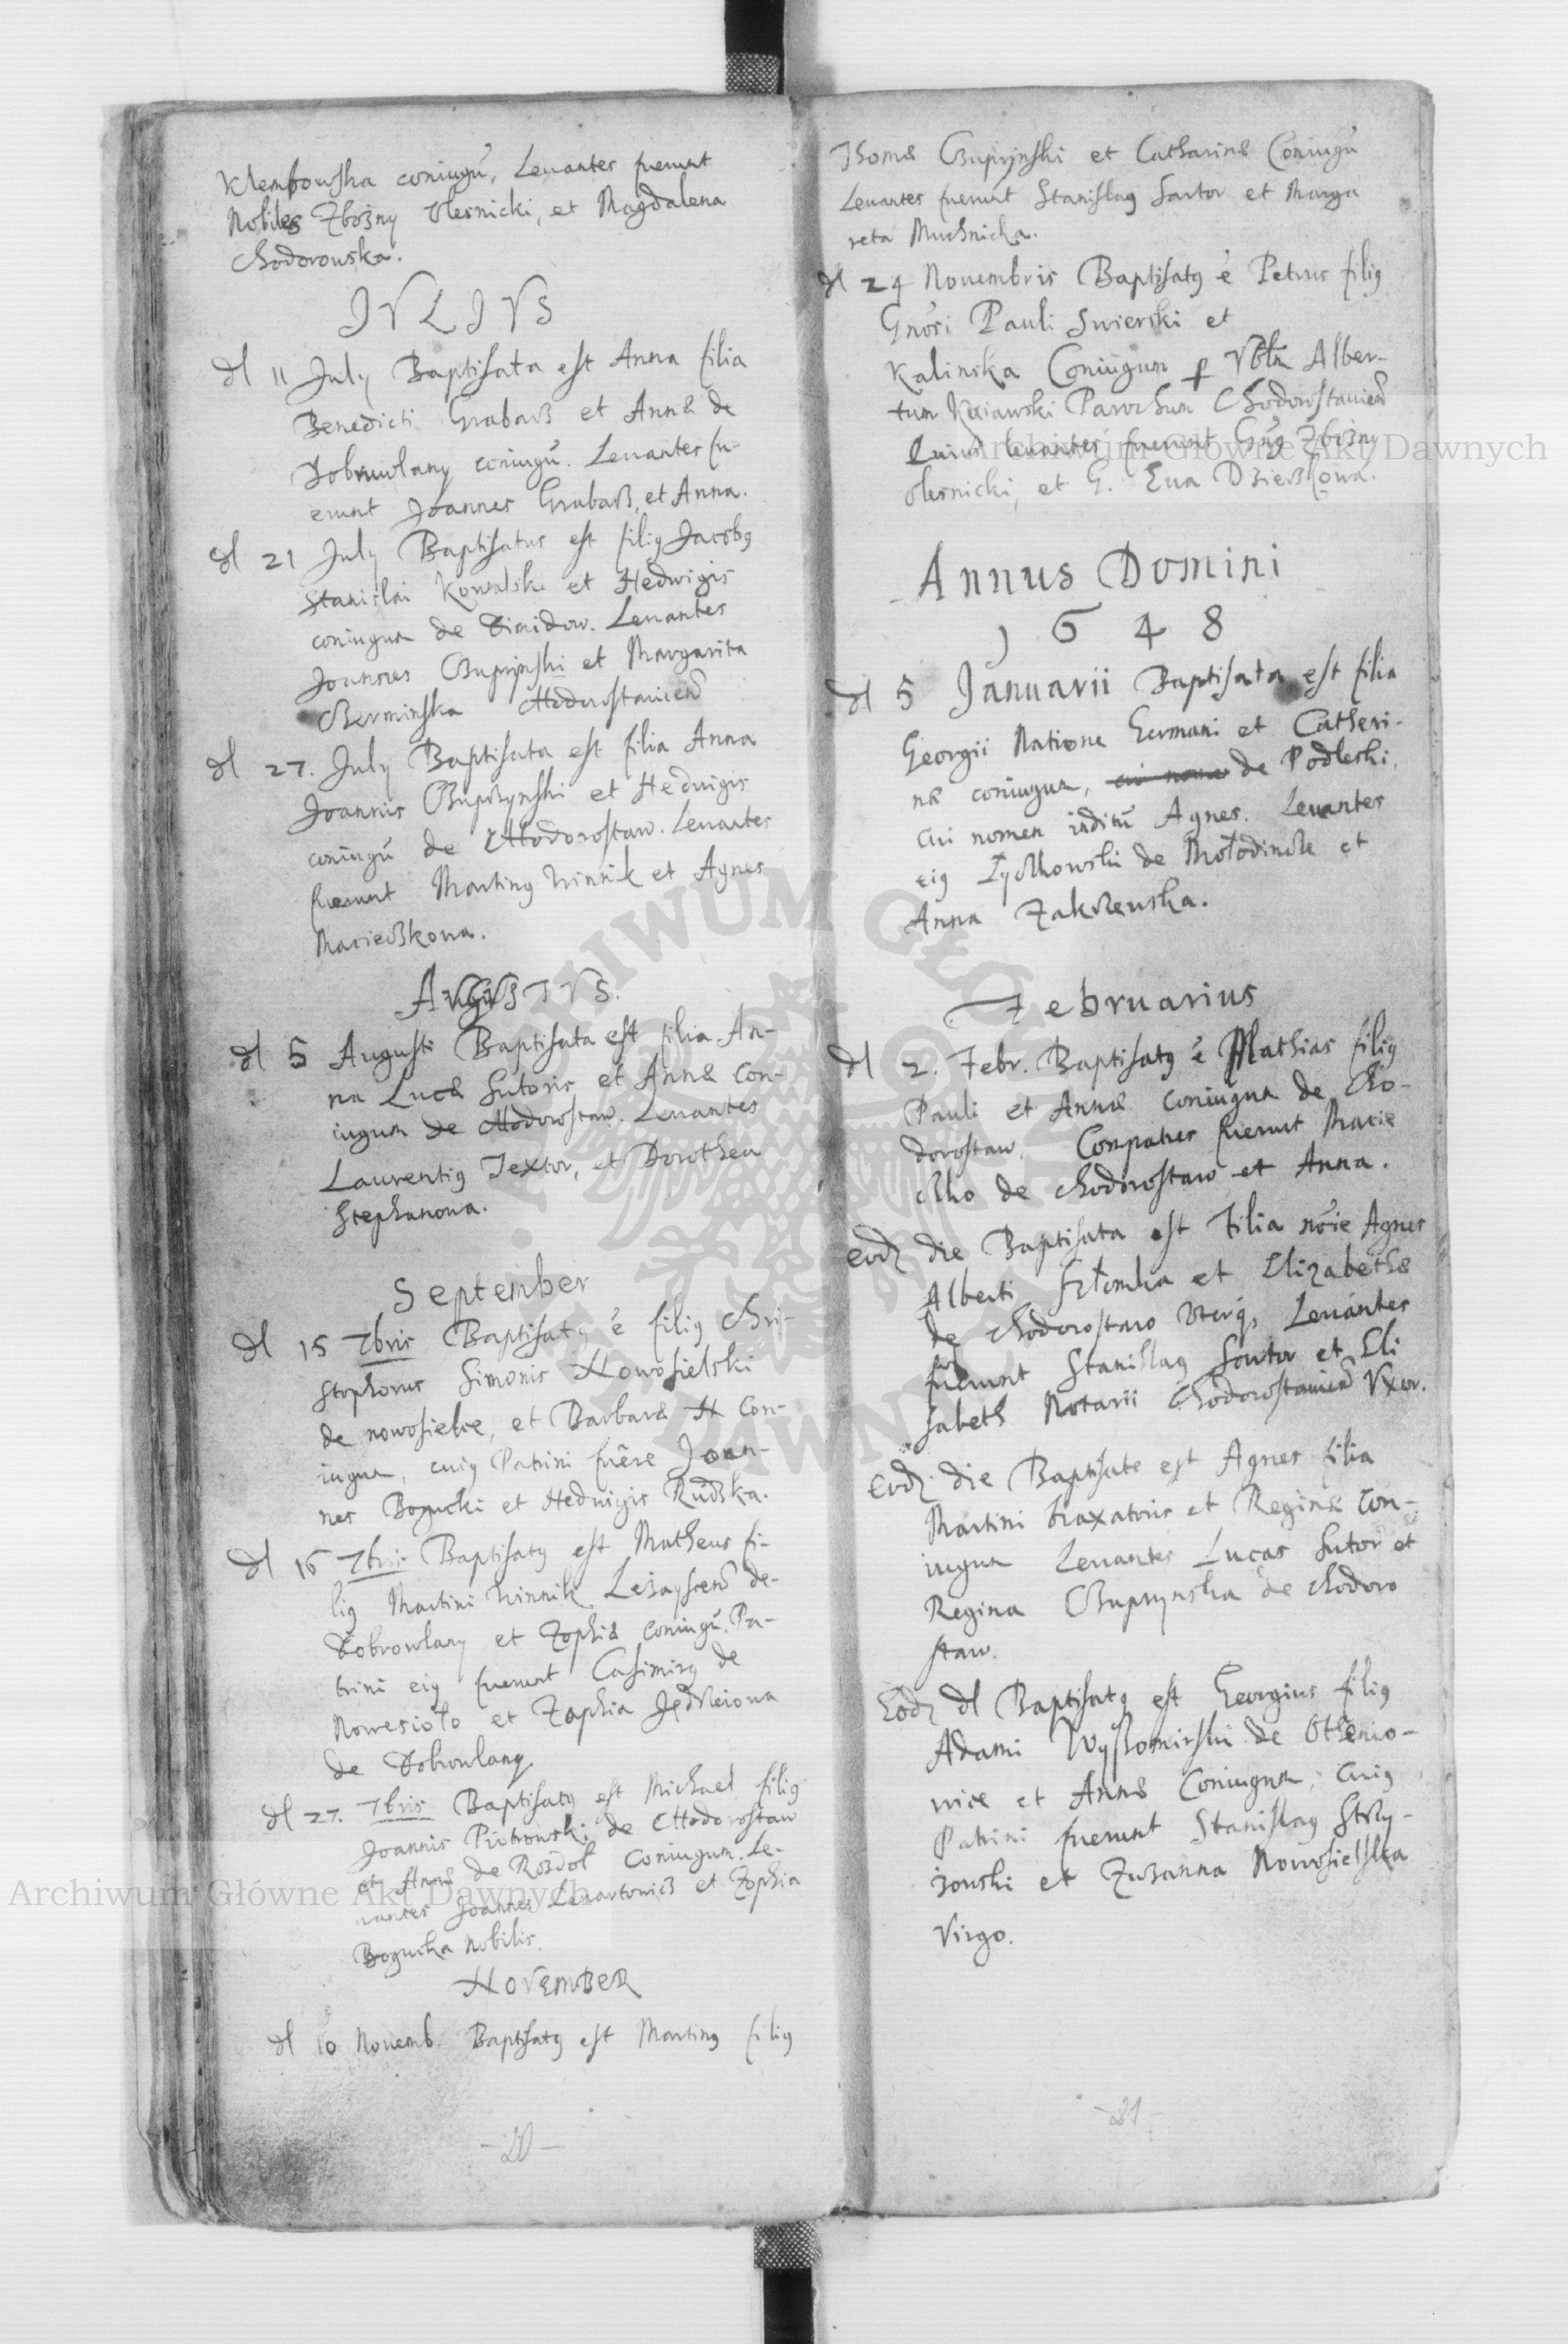 Klembowska coniugū, Leuantes fuerunt
Nobiles Zbożny Olesnicki, et Magdalena
Chodorowska.
JVLIVS
dl 11 July Baptisata est Anna filia
Benedicti Grabaß et Annæ de
Dobrowlany coniugū. Leuantes fu-
erunt Joannes Grabaß, et Anna.
dl 21 July Baptisatus est filiꝰ Jacobꝰ
Stanislai Kowalski et Hedwigis
coniugum de Leuantes
Joannes Cuprynski et Margarita
Czerminska Chodorostauien̄
dl 27. July Baptisata est filia Anna
Joannis Cuprzynski et Heduigis
coniugū de Chodorostaw. Leuantes
fuerunt Martinꝰ Winnik et Agnes
Macießkowa.
AVGVSTVS.
dl 5 Augusti Baptisata est filia An-
na Lucæ Sutoris et Annæ Con-
iugum de Chodorostaw. Leuantes
Laurentiꝰ Textor, et Dorothea
Stephanowa.
September
dl 15 7bris Baptisatꝰ ē filiꝰ Chri-
stophorus Simonis Nowosielski
de nowosielce, et Barbaræ N Con-
iugum, cuiꝰ Patrini fuēre Joan-
nes Bogucki et Heduigis Rudzka.
dl 16 7bris Baptisatꝰ est Matheus fi-
liꝰ Martini Winnik Leżayscen̄ de-
Dobrowlany et Zophiæ coniugū. Pa-
trini eiꝰ fuerunt Casimirꝰ de
Nowesioło et Zophia Jędrzeiowa
de Dobrowlany.
dl 27. 7bris Baptisatꝰ est Michael filiꝰ
Joannis Piotrowski de Chodorostaw
et Annæ de Rozdoł Coniugum. Le-
uantes Joannes Lenartowicz et Zophia
Bogucka Nobilis.
NOVEMBER
dl 10 Nouemb. Baptisatꝰ est Martinꝰ filiꝰ
-20-
Thomæ Cuprynski et Catharinæ Coniugū
Leuantes fuerunt Stanislaꝰ Sartor et Marga
reta Muchnicka.
dl 24 Nouembris Baptisatꝰ ē Petrus filiꝰ
Gnōsi Pauli Swierski et
Kalinska Coniugum p Vbłm Alber-
tum Parochum Chodorostauien̄
Cuius leuantes fuerunt Gn̄ꝰ Zbożny
Olesnicki, et G. Eua Dzießkowa.
Annus Domini
1648
dl 5 Januarii Baptisata est filia
Georgii Natione Germani et Catheri-
næ coniugum, de Podleski,
cui nomen inditū Agnes. Leuantes
eiꝰ Zychowski de Mołodincze et
Anna Zakrzewska.
Februarius
dl 2. Febr. Baptisatꝰ ē Mathias filiꝰ
Pauli et Annæ coniugum de Cho-
dorostaw. Compatres fuerunt Macie
cho de Chodorostaw et Anna.
Eodꝫ die Baptisata est Filia nōie Agnes
Alberti Szłomka et Elizabethæ
de Chodorostaw Leuantes
fuerunt Stanislaꝰ Sartor et Eli
sabeth Notarii Chodorostauien̄ Vxor.
Eodꝫ die Baptisate est Agnes filia
Martini braxatoris et Reginæ Con-
iugum Leuantes Lucas Sutor et
Regina Cuprynska de Chodoro
staw.
Eodꝫ dl Baptisatꝰ est Georgius filiꝰ
Adami Wyßomirski de Ottenio-
wice et Annæ Coniugum, cuiꝰ
Patrini fuerunt Stanislaꝰ Strzy-
żowski et Zuzanna Nowosielska
Virgo.
-21-
Archiwum Główne Akt Dawnych
Archiwum Główne Akt Dawnych
ARCHIWUM GŁÓWNE AKT DAWNYCH